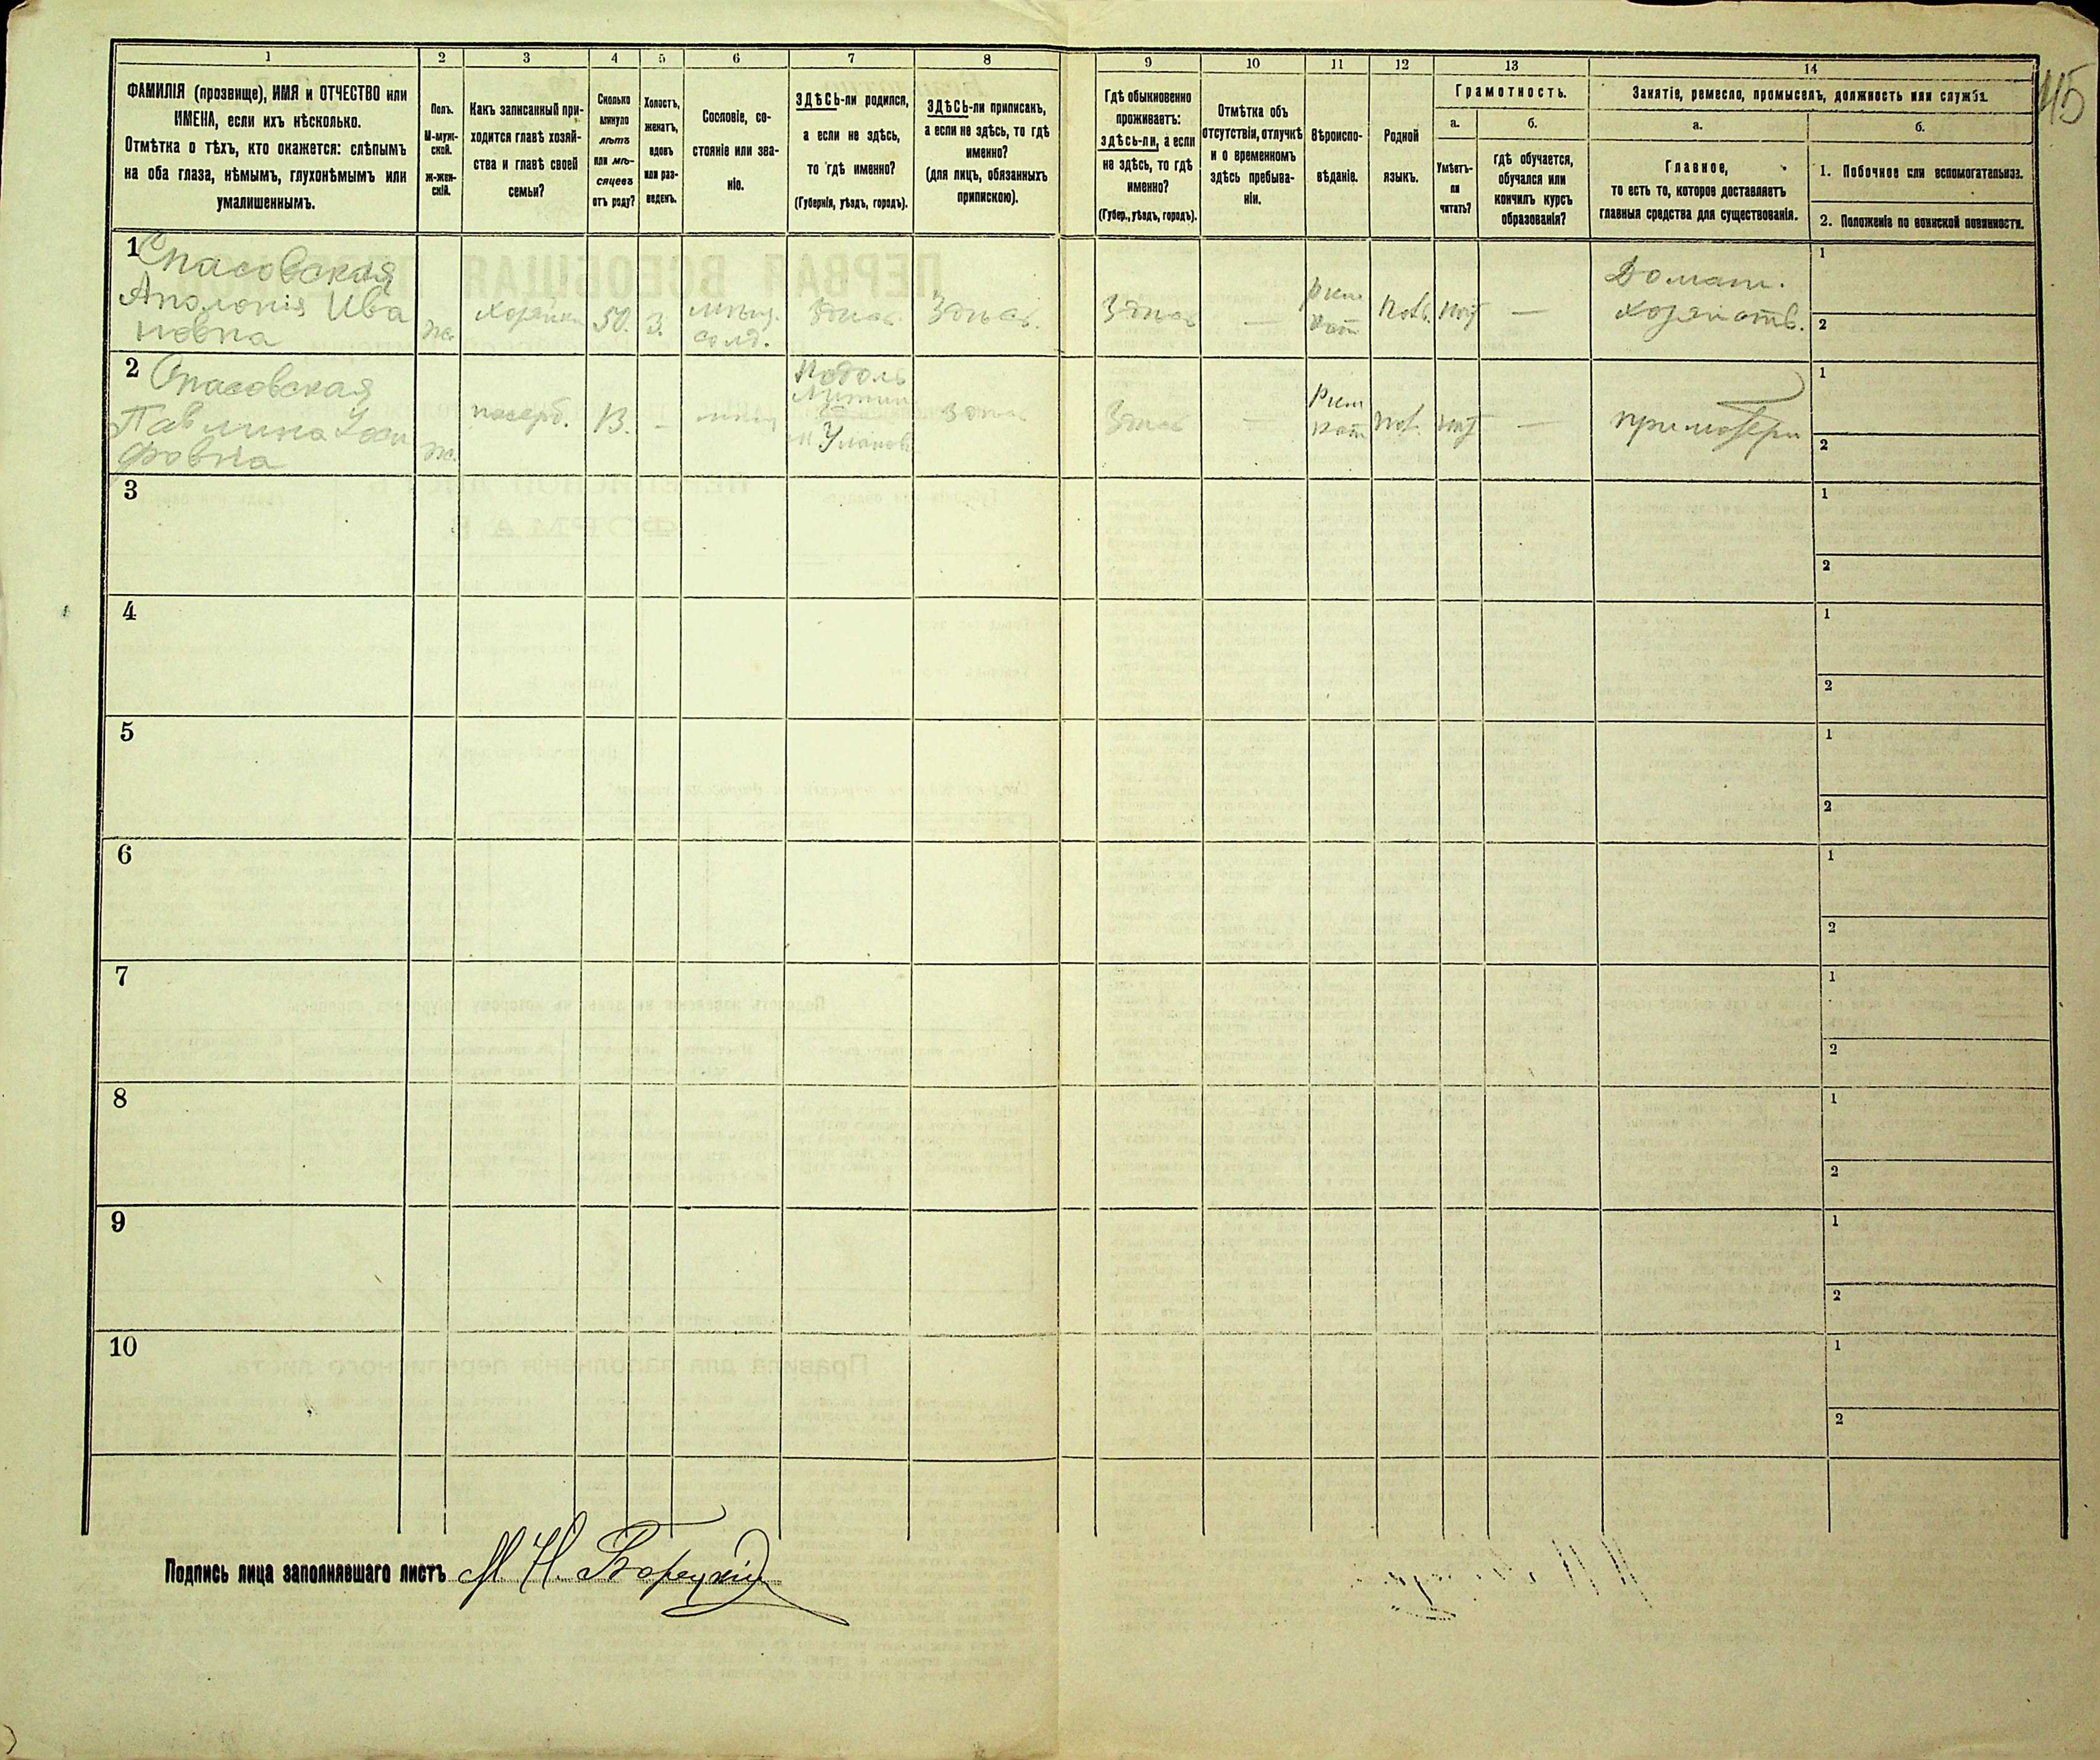 1 2 3 4 5 6 7 8 9 10 11 12 13 14
ФАМИЛІЯ (прозвище), ИМЯ и ОТЧЕСТВО или
ИМЕНА, если ихъ нѣсколько.
Отмѣтка о тѣхъ, кто окажется: слѣпымъ
на оба глаза, нѣмымъ, глухонѣмымъ или
умалишеннымъ.
Полъ.
М-муж-
ской.
Ж-жен-
скій.
Какъ записанный при-
ходится главѣ хозяй-
ства и главѣ своей
семьи?
Сколько
минуло
лѣтъ
или мѣ-
сяцевъ
отъ роду?
Холостъ,
женатъ,
вдовъ
или раз-
веденъ.
Сословіе, со-
стояніе или зва-
ніе.
ЗДѢСЬ-ли родился,
а если не здѣсь,
то гдѣ именно?
(Губернія, уѣздъ, городъ).
ЗДѢСЬ-ли приписанъ,
а если не здѣсь, то гдѣ
именно?
(для лицъ, обязанныхъ
припискою).
Гдѣ обыкновенно
проживаетъ:
здѣсь-ли, а если
не здѣсь, то гдѣ
именно?
(Губер., уѣздъ, городъ).
Отмѣтка объ
отсутствіи, отлучкѣ
и о временномъ
здѣсь пребыва-
ніи.
Вѣроиспо-
вѣданіе.
Родной
языкъ.
Грамотность.
а.
Умѣетъ-
ли
читать?
б.
гдѣ обучается,
обучался или
кончилъ курсъ
образованія?
Занятіе, ремесло, промыселъ, должность или служба.
а.
Главное,
то есть то, которое доставляетъ
главныя средства для существованія.
б.
1. Побочное или вспомогательное.
2. Положеніе по воинской повинности.
115
1 Спасовская
Аполонія Ива
новна
ж.
хозяйка
50.
З.
солд.
Здѣсь
Здѣсь.
Здѣсь
—
Рим
кат
Пол.
нѣт
—
Домаш.
хозяйств.
1
2
2 Спасовская
Павлина
фовна
ж.
13.
—
Подоль
Здѣсь
Здѣсь
—
Рим
кат
Пол.
нѣт
—
при матери
1
2
3
1
2
4
1
2
5
1
2
6
1
2
7
1
2
8
1
2
9
1
2
10
1
2
Подпись лица заполнявшаго листъ М. Н. Борецкій